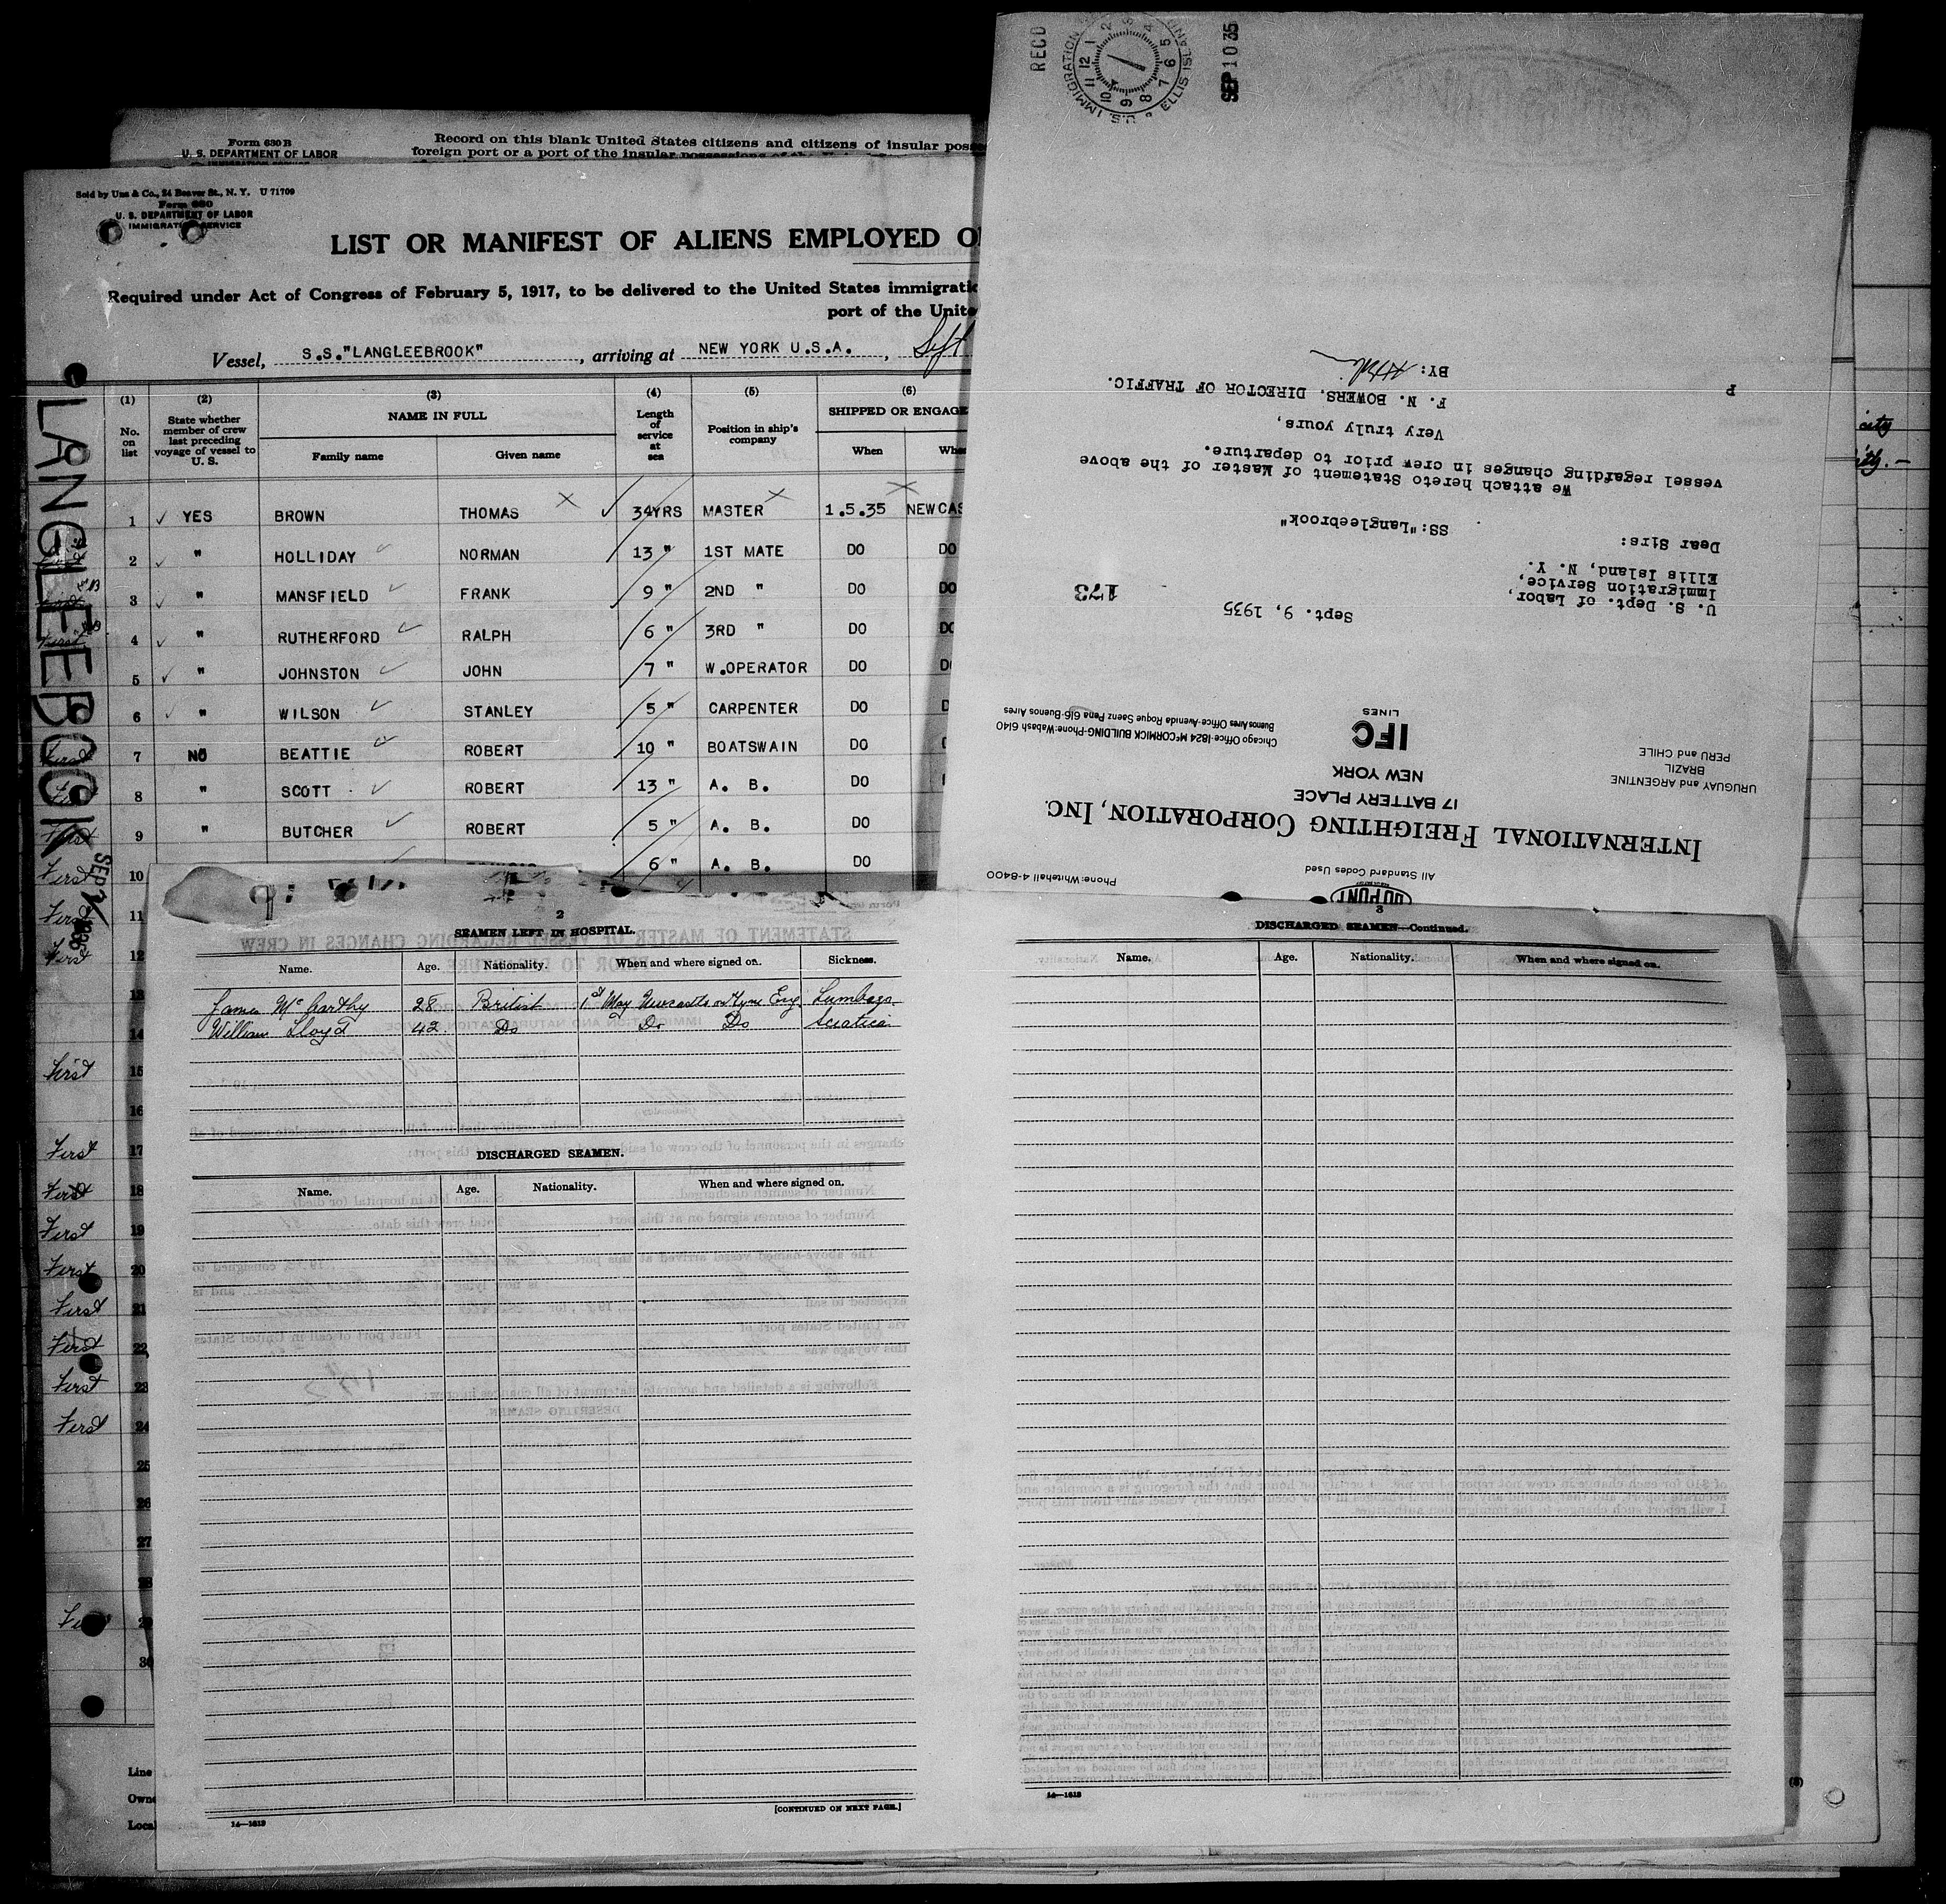 Form 630 B
U. S. DEPARTMENT OF LABOR
Record on this blank United States citizens and citizens of insular
foreign port or a port of the insular possessions of the
Sold by Unz & Co., 24 Beaver St., N. Y. U 71709
Form 680
U. S. DEPARTMENT OF LABOR
IMMIGRATION SERVICE
LIST OR MANIFEST OF ALIENS EMPLOYED
Required under Act of Congress of February 5, 1917, to be delivered to the United States
port of the
Vessel, S.S."LANGLEEBROOK", arriving at NEW YORK U.S.A., Sept
(1) (2) (3) (4) (5) (6)
No. on list
State whether member of crew last preceding voyage of vessel to U. S.
NAME IN FULL
Family name Given name
Length of service at sea
Position in ship's company
SHIPPED OR
When
1 YES BROWN THOMAS 34YRS MASTER 1.5.35
2 " HOLLIDAY NORMAN 13 " 1ST MATE DO DO
3 " MANSFIELD FRANK 9 " 2ND " DO DO
4 " RUTHERFORD RALPH 6 " 3RD " DO
5 " JOHNSTON JOHN 7 " W.OPERATOR DO
6 " WILSON STANLEY 5 " CARPENTER DO
7 NO BEATTIE ROBERT 10 " BOATSWAIN DO
8 " SCOTT ROBERT 13 " A. B. DO
9 " BUTCHER ROBERT 5 " A. B. DO
10 6 " A. B. DO
11
12
13
14
15
16
17
18
19
20
21
22
23
24
25
26
27
28
29
30
LANGLEEBROOK
First
First
First
First
First
First
First
First
First
First
First
First
First
First
Line
RECD
U.S. IMMIGRATION
ELLIS ISLAND
SEP 10 35
DU PONT
Phone: Whitehall 4-8400
All Standard Codes Used
INTERNATIONAL FREIGHTING CORPORATION, INC.
17 BATTERY PLACE
NEW YORK
URUGUAY and ARGENTINE
BRAZIL
PERU and CHILE
IFC
LINES
Chicago Office-1824 McCORMICK BUILDING-Phone: Wabash 6140
Buenos Aires Office-Avenida Roque Saenz Pena 616-Buenos Aires
Sept. 9, 1935
173
U. S. Dept. of Labor,
Immigration Service,
Ellis Island, N. Y.
Dear Sirs:
SS:"Langleebrook"
We attach hereto Statement of Master of the above
vessel regarding changes in crew prior to departure.
Very truly yours,
F. N. BOWERS. DIRECTOR OF TRAFFIC.
BY:
P
2
SEAMEN LEFT IN HOSPITAL.
Name. Age. Nationality. When and where signed on. Sickness.
James McCarthy 28 British 1st May Newcastle on Tyne Eng. Lumbago.
William Lloyd 42. Do Do Do Sciatica
DISCHARGED SEAMEN.
Name. Age. Nationality. When and where signed on.
[CONTINUED ON NEXT PAGE.]
14—1613
3
DISCHARGED SEAMEN—Continued.
Name. Age. Nationality. When and where signed on.
14—1613